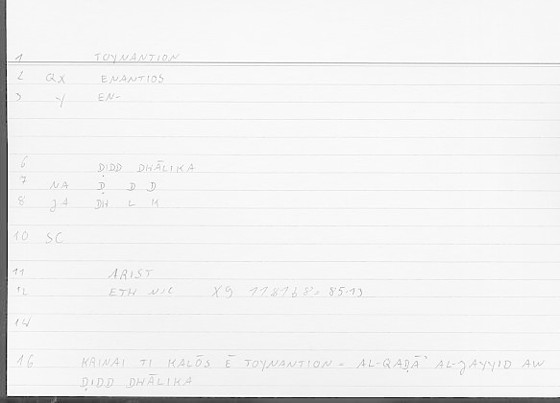 1 TOYNANTION
2 QX ENANTIOS
3 EN-
6 ḌIDD DHĀLIKA
7 NA Ḍ D D
8 JA DH L K
10 SC
11 ARIST
12 ETH NIC X9 1181b8. 85.13
14
16 KRINAI TI KALŌS Ē TOYNANTION - AL-QAḌĀʾ AL-JAYYID AW
ḌIDD DHĀLIKA